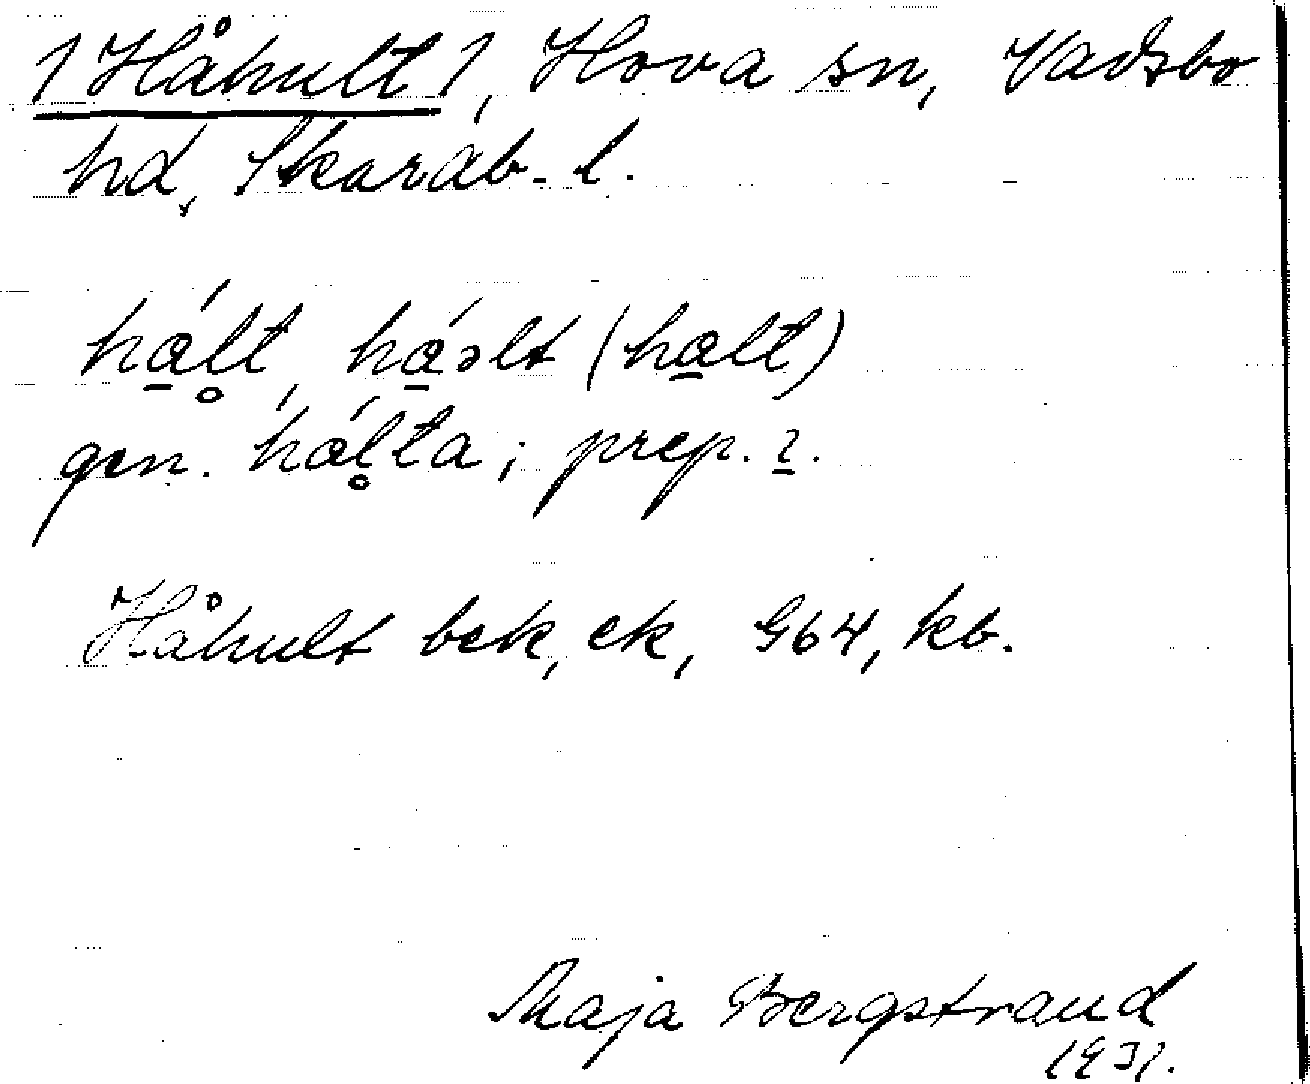 /Håhult/, Hova sn, Vadsbo
hd, Skarab. l.
hά̱l̥t, hά̱əlt (hα̱lt)
gen. hál̥ta; prep. ɩ̱.
Håhult bek, ek, G64, kb.
Maja Bergstrand
1931.